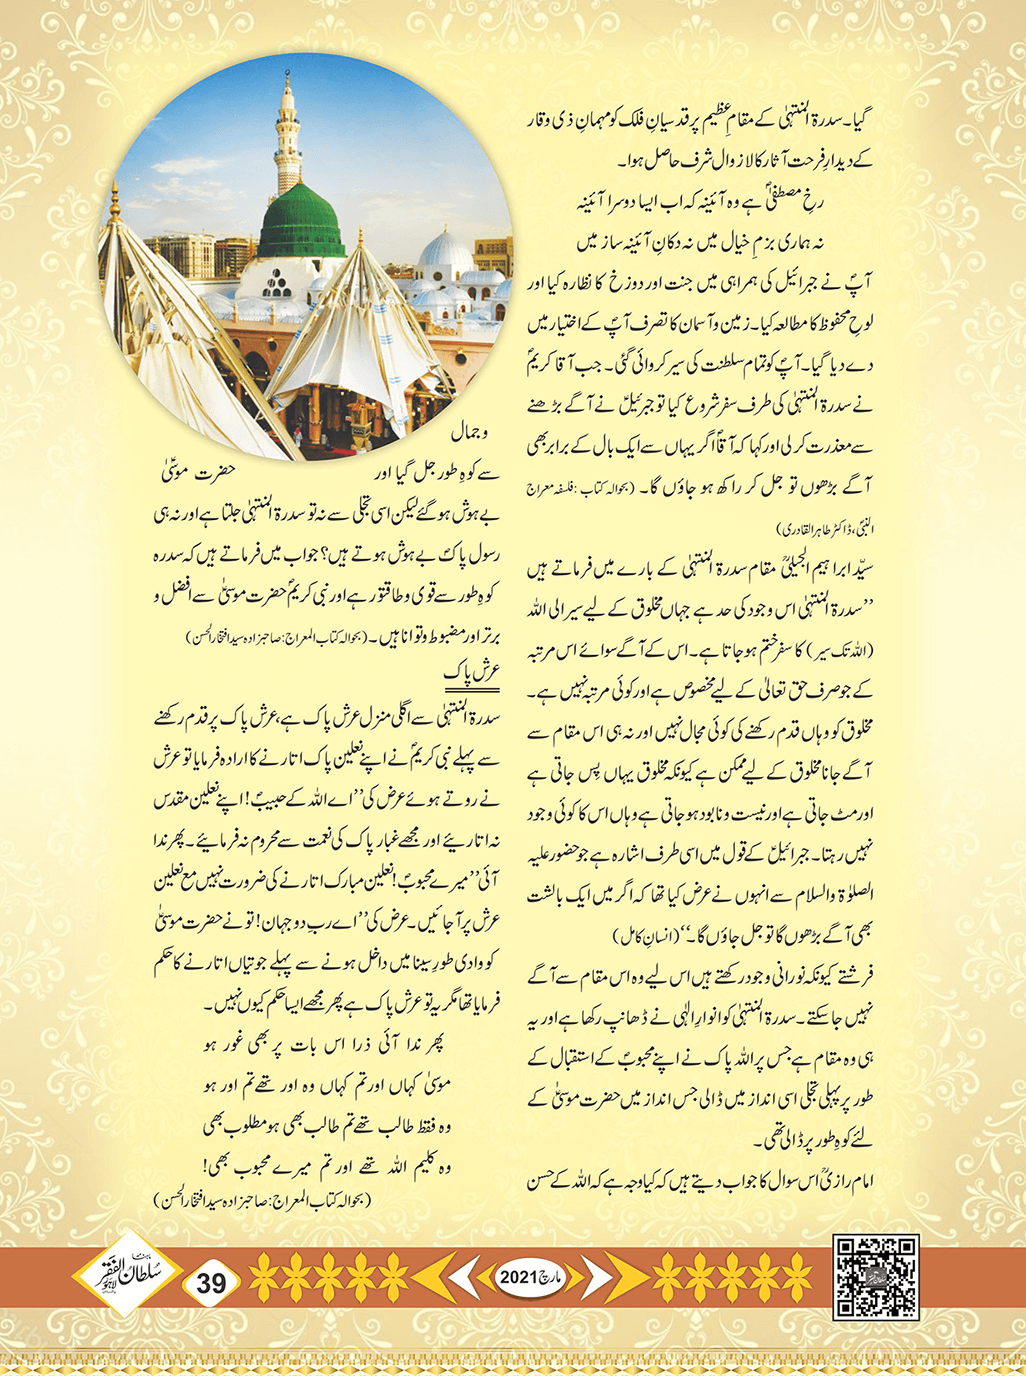 گیا۔ سدرۃ المنتہیٰ کے مقامِ عظیم پر قدسیانِ فلک کو مہمانِ ذی وقار
کے دیدارِ فرحت آثار کا لازوال شرف حاصل ہوا۔
رخِ مصطفیؐ ہے وہ آئینہ کہ اب ایسا دوسرا آئینہ
نہ ہماری بزمِ خیال میں نہ دکانِ آئینہ ساز میں
آپؐ نے جبرائیل کی ہمراہی میں جنت اور دوزخ کا نظارہ کیا اور
لوحِ محفوظ کا مطالعہ کیا۔ زمین و آسمان کا تصرف آپؐ کے اختیار میں
دے دیا گیا۔ آپؐ کو تمام سلطنت کی سیر کروائی گئی۔ جب آقا کریمؐ
نے سدرۃ المنتہیٰ کی طرف سفر شروع کیا تو جبرئیلؑ نے آگے بڑھنے
سے معذرت کر لی اور کہا کہ آقاؐ اگر یہاں سے ایک بال کے برابر بھی
آگے بڑھوں تو جل کر راکھ ہو جاؤں گا۔ (بحوالہ کتاب: فلسفہ معراج
النبیؐ، ڈاکٹر طاہر القادری)
سیّد ابراہیم الجیلیؒ مقام سدرۃ المنتہیٰ کے بارے میں فرماتے ہیں
’’سدرۃ المنتہیٰ اس وجود کی حد ہے جہاں مخلوق کے لیے سیر الی اللہ
(اللہ تک سیر) کا سفر ختم ہو جاتا ہے۔ اس کے آگے سوائے اس مرتبہ
کے جو صرف حق تعالیٰ کے لیے مخصوص ہے اور کوئی مرتبہ نہیں ہے۔
مخلوق کو وہاں قدم رکھنے کی کوئی مجال نہیں اور نہ ہی اس مقام سے
آگے جانا مخلوق کے لیے ممکن ہے کیونکہ مخلوق یہاں پِس جاتی ہے
اور مٹ جاتی ہے اور نیست و نابود ہو جاتی ہے وہاں اس کا کوئی وجود
نہیں رہتا۔ جبرائیلؑ کے قول میں اسی طرف اشارہ ہے جو حضور علیہ
الصلوٰۃ والسلام سے انہوں نے عرض کیا تھا کہ اگر میں ایک بالشت
بھی آگے بڑھوں گا تو جل جاؤں گا۔‘‘ (انسانِ کامل)
فرشتے کیونکہ نورانی وجود رکھتے ہیں اس لیے وہ اس مقام سے آگے
نہیں جا سکتے۔ سدرۃ المنتہیٰ کو انوارِ الٰہی نے ڈھانپ رکھا ہے اور یہ
ہی وہ مقام ہے جس پر اللہ پاک نے اپنے محبوبؐ کے استقبال کے
طور پر پہلی تجلی اسی انداز میں ڈالی جس انداز میں حضرت موسیٰؑ کے
لئے کوہِ طور پر ڈالی تھی۔
امام رازیؒ اس سوال کا جواب دیتے ہیں کہ کیا وجہ ہے کہ اللہ کے حسن
و جمال
سے کوہِ طور جل گیا اور حضرت موسیٰؑ
بے ہوش ہو گئے لیکن اسی تجلی سے نہ تو سدرۃ المنتہیٰ جلتا ہے اور نہ ہی
رسول پاکؐ بے ہوش ہوتے ہیں؟ جواب میں فرماتے ہیں کہ سدرہ
کوہِ طور سے قوی و طاقتور ہے اور نبی کریمؐ حضرت موسیٰؑ سے افضل و
برتر اور مضبوط و توانا ہیں۔ (بحوالہ کتاب المعراج: صاحبزادہ سید افتخار الحسن)
عرش پاک
سدرۃ المنتہیٰ سے اگلی منزل عرش پاک ہے، عرش پاک پر قدم رکھنے
سے پہلے نبی کریمؐ نے اپنے نعلین پاک اتارنے کا ارادہ فرمایا تو عرش
نے روتے ہوئے عرض کی ’’اے اللہ کے حبیبؐ! اپنے نعلین مقدس
نہ اتاریئے اور مجھے غبارِ پاک کی نعمت سے محروم نہ فرمائیے۔ پھر ندا
آئی ’’میرے محبوبؐ! نعلین مبارک اتارنے کی ضرورت نہیں مع نعلین
عرش پر آ جائیں۔ عرض کی ’’اے ربِ دو جہان! تو نے حضرت موسیٰؑ
کو وادی طورِ سینا میں داخل ہونے سے پہلے جوتیاں اتارنے کا حکم
فرمایا تھا مگر یہ تو عرش پاک ہے پھر مجھے ایسا حکم کیوں نہیں۔
پھر ندا آئی ذرا اس بات پر بھی غور ہو
موسیٰ کہاں اور تم کہاں وہ اور تھے تم اور ہو
وہ فقط طالب تھے تم طالب بھی ہو مطلوب بھی
وہ کلیم اللہ تھے اور تم میرے محبوب بھی!
(بحوالہ کتاب المعراج: صاحبزادہ سید افتخار الحسن)
ماہنامہ
سلطان الفقر
لاہور
39
مارچ 2021